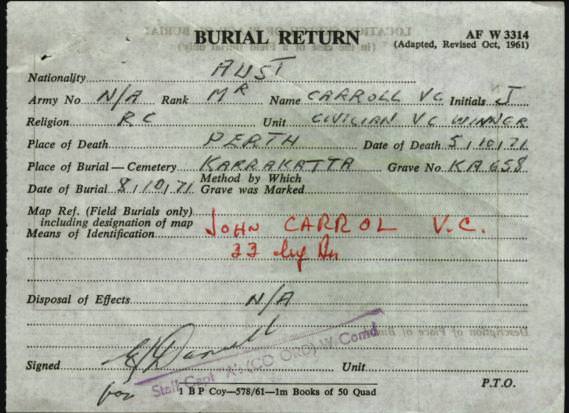 BURIAL RETURN
AF W 3314
(Adapted, Revised Oct, 1961)
Nationality AUST
Army No N/A Rank MR Name CARROLL VC Initials J
Religion RC Unit CIVILIAN VC WINNER
Place of Death PERTH Date of Death 5/10/71
Place of Burial—Cemetery KARRAKATTA Grave No KA 658
Date of Burial 8/10/71 Method by Which Grave was Marked
Map Ref. (Field Burials only)
including designation of map
Means of Identification JOHN CARROL V.C.
33
Disposal of Effects N/A
Signed Unit
for Staff Capt "A" (CO Ord) W Comd
1 B P Coy—578/61—1m Books of 50 Quad
P.T.O.